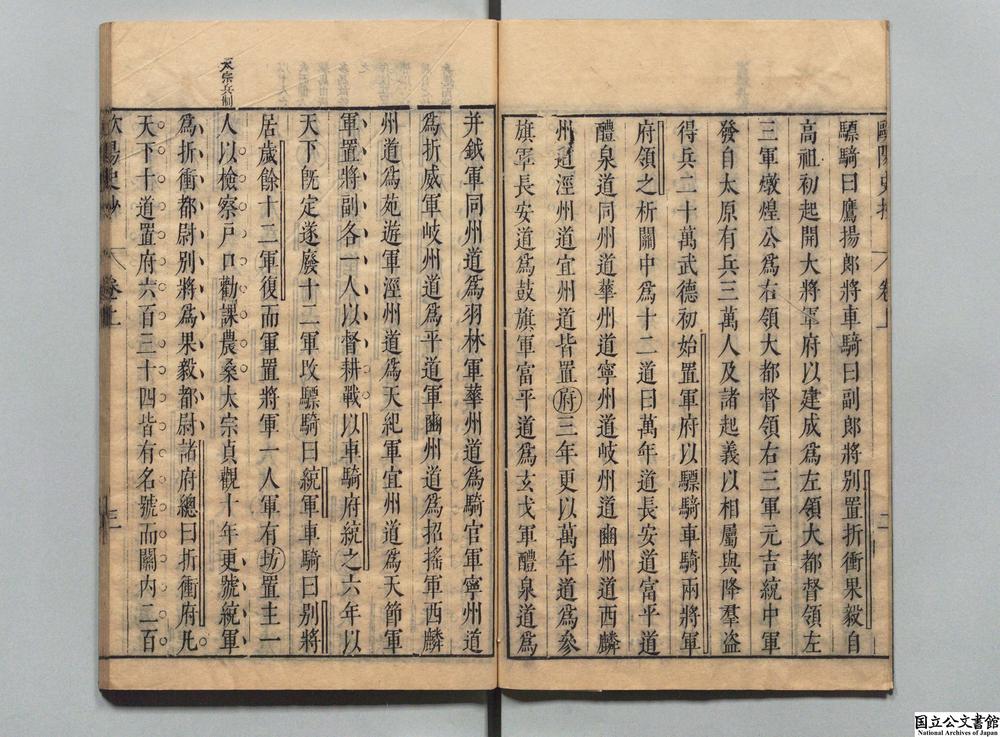 驃騎曰鷹揚郎將車騎曰副郎將别置折衝果毅自
高祖初起開大將軍府以建成爲左領大都督領左
三軍燉煌公爲右領大都督領右三軍元吉統中軍
發自太原有兵三萬人及諸起義以相屬與降羣盜
得兵二十萬武德初始置軍府以驃騎車騎兩將軍
府領之析關中爲十二道曰萬年道長安道富平道
醴泉道同州道華州道寧州道岐州道豳州道西麟
州道涇州道宜州道皆置府三年更以萬年道爲參
旗軍長安道爲鼓旗軍富平道爲玄戈軍醴泉道爲
井鉞軍同州道爲羽林軍華州道爲騎官軍寧州道
爲折威軍岐州道爲平道軍豳州道爲招搖軍西麟
州道爲苑遊軍涇州道爲天紀軍宜州道爲天節軍
軍置將副各一人以督耕戰以車騎府統之六年以
天下旣定遂廢十二軍改驃騎曰統軍車騎曰别將
居歲餘十二軍復而軍置將軍一人軍有坊置主一
太宗兵制
人以檢察戸口勸課農桑太宗貞觀十年更號統軍
爲折衝都尉别將爲果毅都尉諸府總曰折衝府凡
天下十道置府六百三十四皆有名號而關内二百
卷上
三
国立公文書館
National Archives of Japan